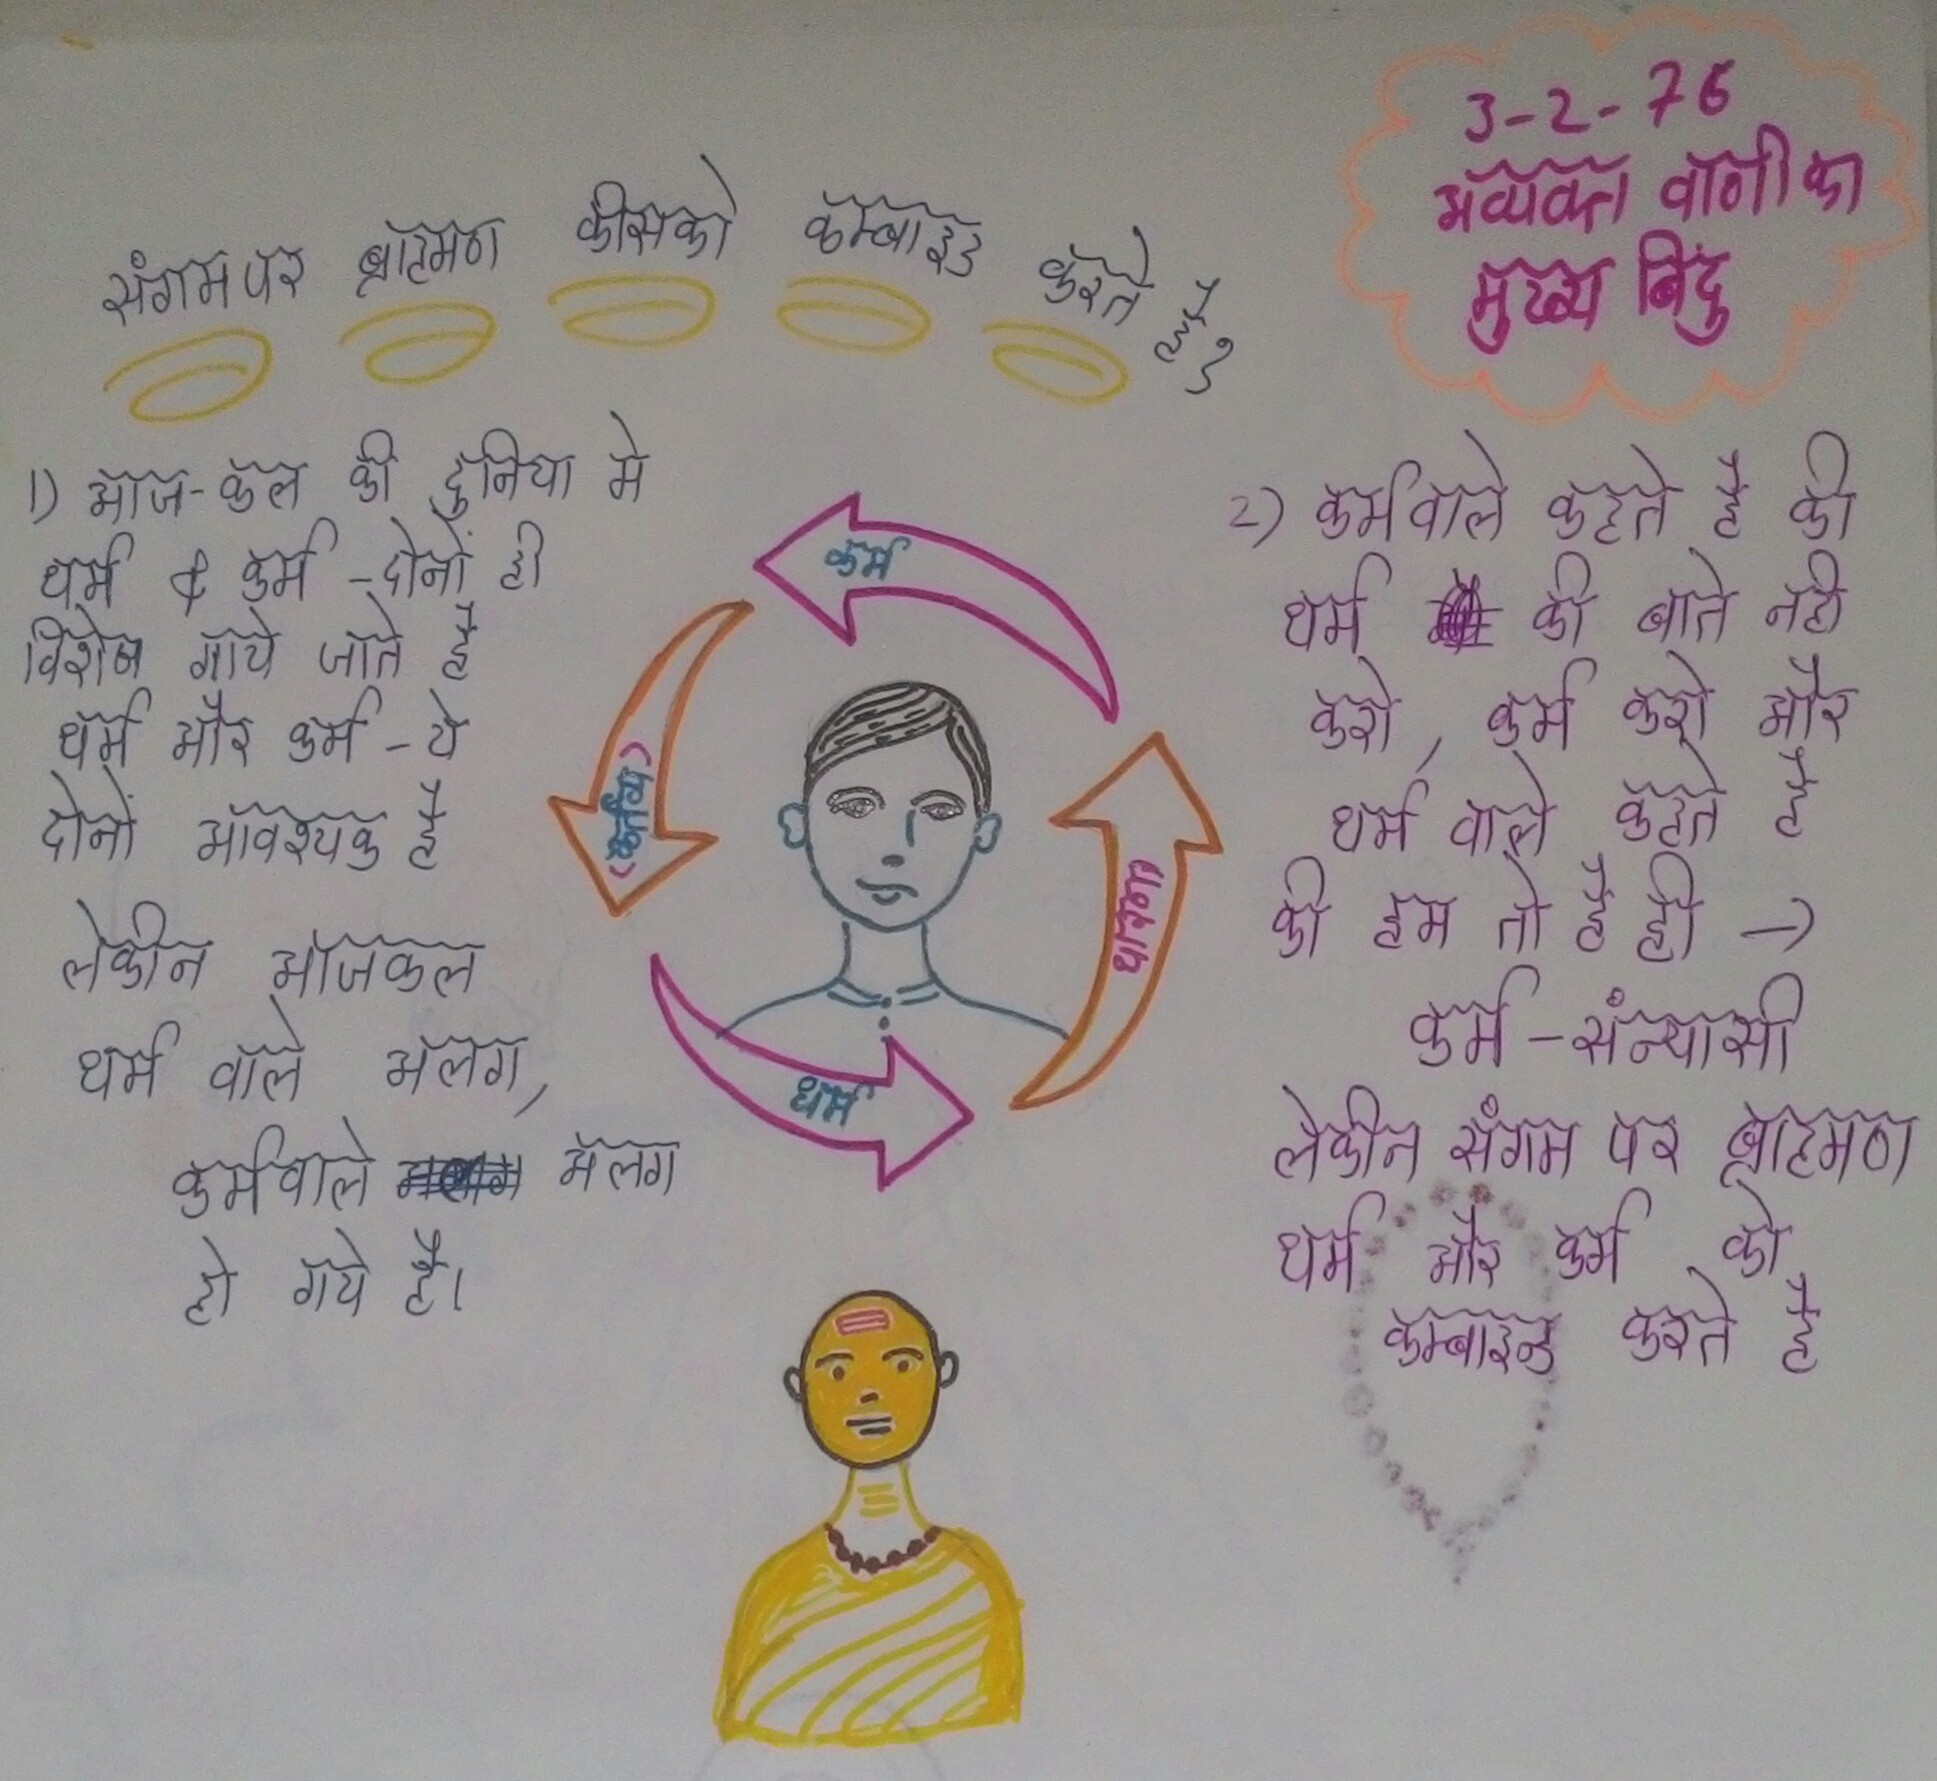 3-2-76
अव्यक्त वाणी का
मुख्य बिंदु
संगम पर ब्राह्मण कीसको कम्बाइंड करते है?
1) आज-कल की दुनिया मे
धर्म & कर्म - दोनों ही
विशेष गाये जाते है
धर्म और कर्म - ये
दोनों आवश्यक है
लेकीन आजकल
धर्म वाले अलग,
कर्मवाले अलग
हो गये है।
कर्म
(कर्तव्य)
धर्म
धारणा
2) कर्मवाले कहते है की
धर्म की बाते नही
करो, कर्म करो और
धर्म वाले कहते है
की हम तो है ही →
कर्म - संन्यासी
लेकीन संगम पर ब्राह्मण
धर्म और कर्म को
कम्बाइन्ड करते है